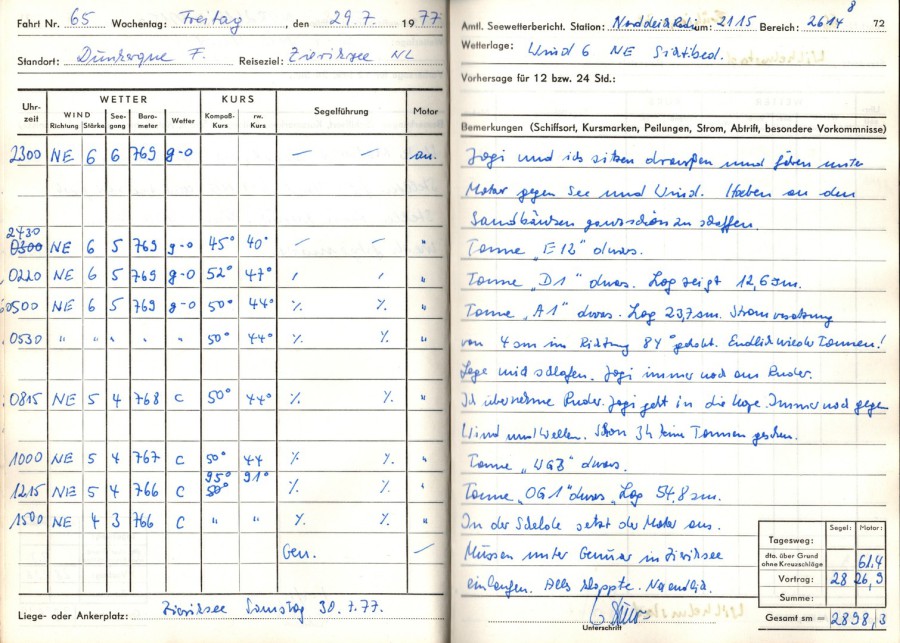 Fahrt Nr. 65 Wochentag: Freitag, den 29.7. 1977
Standort: Dunkerque F. Reiseziel: Zieriksee NL
Uhrzeit WETTER KURS Segelführung Motor
WIND Seegang Barometer Wetter Kompaß-Kurs rw. Kurs
Richtung Stärke
2300 NE 6 6 769 g-o — — an.
2430
0300 NE 6 5 769 g-o 45° 40° — — "
0220 NE 6 5 769 g-o 52° 47° "
0500 NE 6 5 769 g-o 50° 44° ٪. ٪. "
0530 " " " " " 50° 44° ٪. ٪. "
0815 NE 5 4 768 c 50° 44° ٪. ٪. "
1000 NE 5 4 767 c 50° 44 ٪. ٪. "
95° 91°
1215 NE 5 4 766 c 50° ٪. ٪. "
1500 NE 4 3 766 c " " ٪. ٪. "
Gen. —
Liege- oder Ankerplatz: Zieriksee Samstag 30.7.77.
8
Amtl. Seewetterbericht. Station: Norddeich Radio um: 2115 Bereich: 2614 72
Wetterlage: Wind 6 NE
Vorhersage für 12 bzw. 24 Std.:
Bemerkungen (Schiffsort, Kursmarken, Peilungen, Strom, Abtrift, besondere Vorkommnisse)
Jogi und ich sitzen draußen und fahren unter
Motor gegen See und Wind. Haben an den
Sandbänken ganz schön zu schaffen.
Tonne „E12" dwars.
Tonne „D1" dwars. Log zeigt 12,6 sm.
Tonne „A1" dwars. Log 23,7 sm. Stromversetzung
von 4 sm in Richtung 84° gehabt. Endlich wieder Tonnen!
Lege mich schlafen. Jogi immer noch am Ruder.
Ich übernehme Ruder. Jogi geht in die Koje. Immer noch gegen
Wind und Wellen. Schon 3h keine Tonnen gesehen.
Tonne „WGZ" dwars.
Tonne „OG1" dwars „Log 54,8 sm.
In der Schelde setzt der Motor aus.
Müssen unter Genua in Zieriksee
einlaufen. Alles klappte. Na endlich
Unterschrift
Segel: Motor:
Tageweg:
dto. über Grund ohne Kreuzschläge 61.4
Vortrag: 28 26,9
Summe:
Gesamt sm = 2898,3